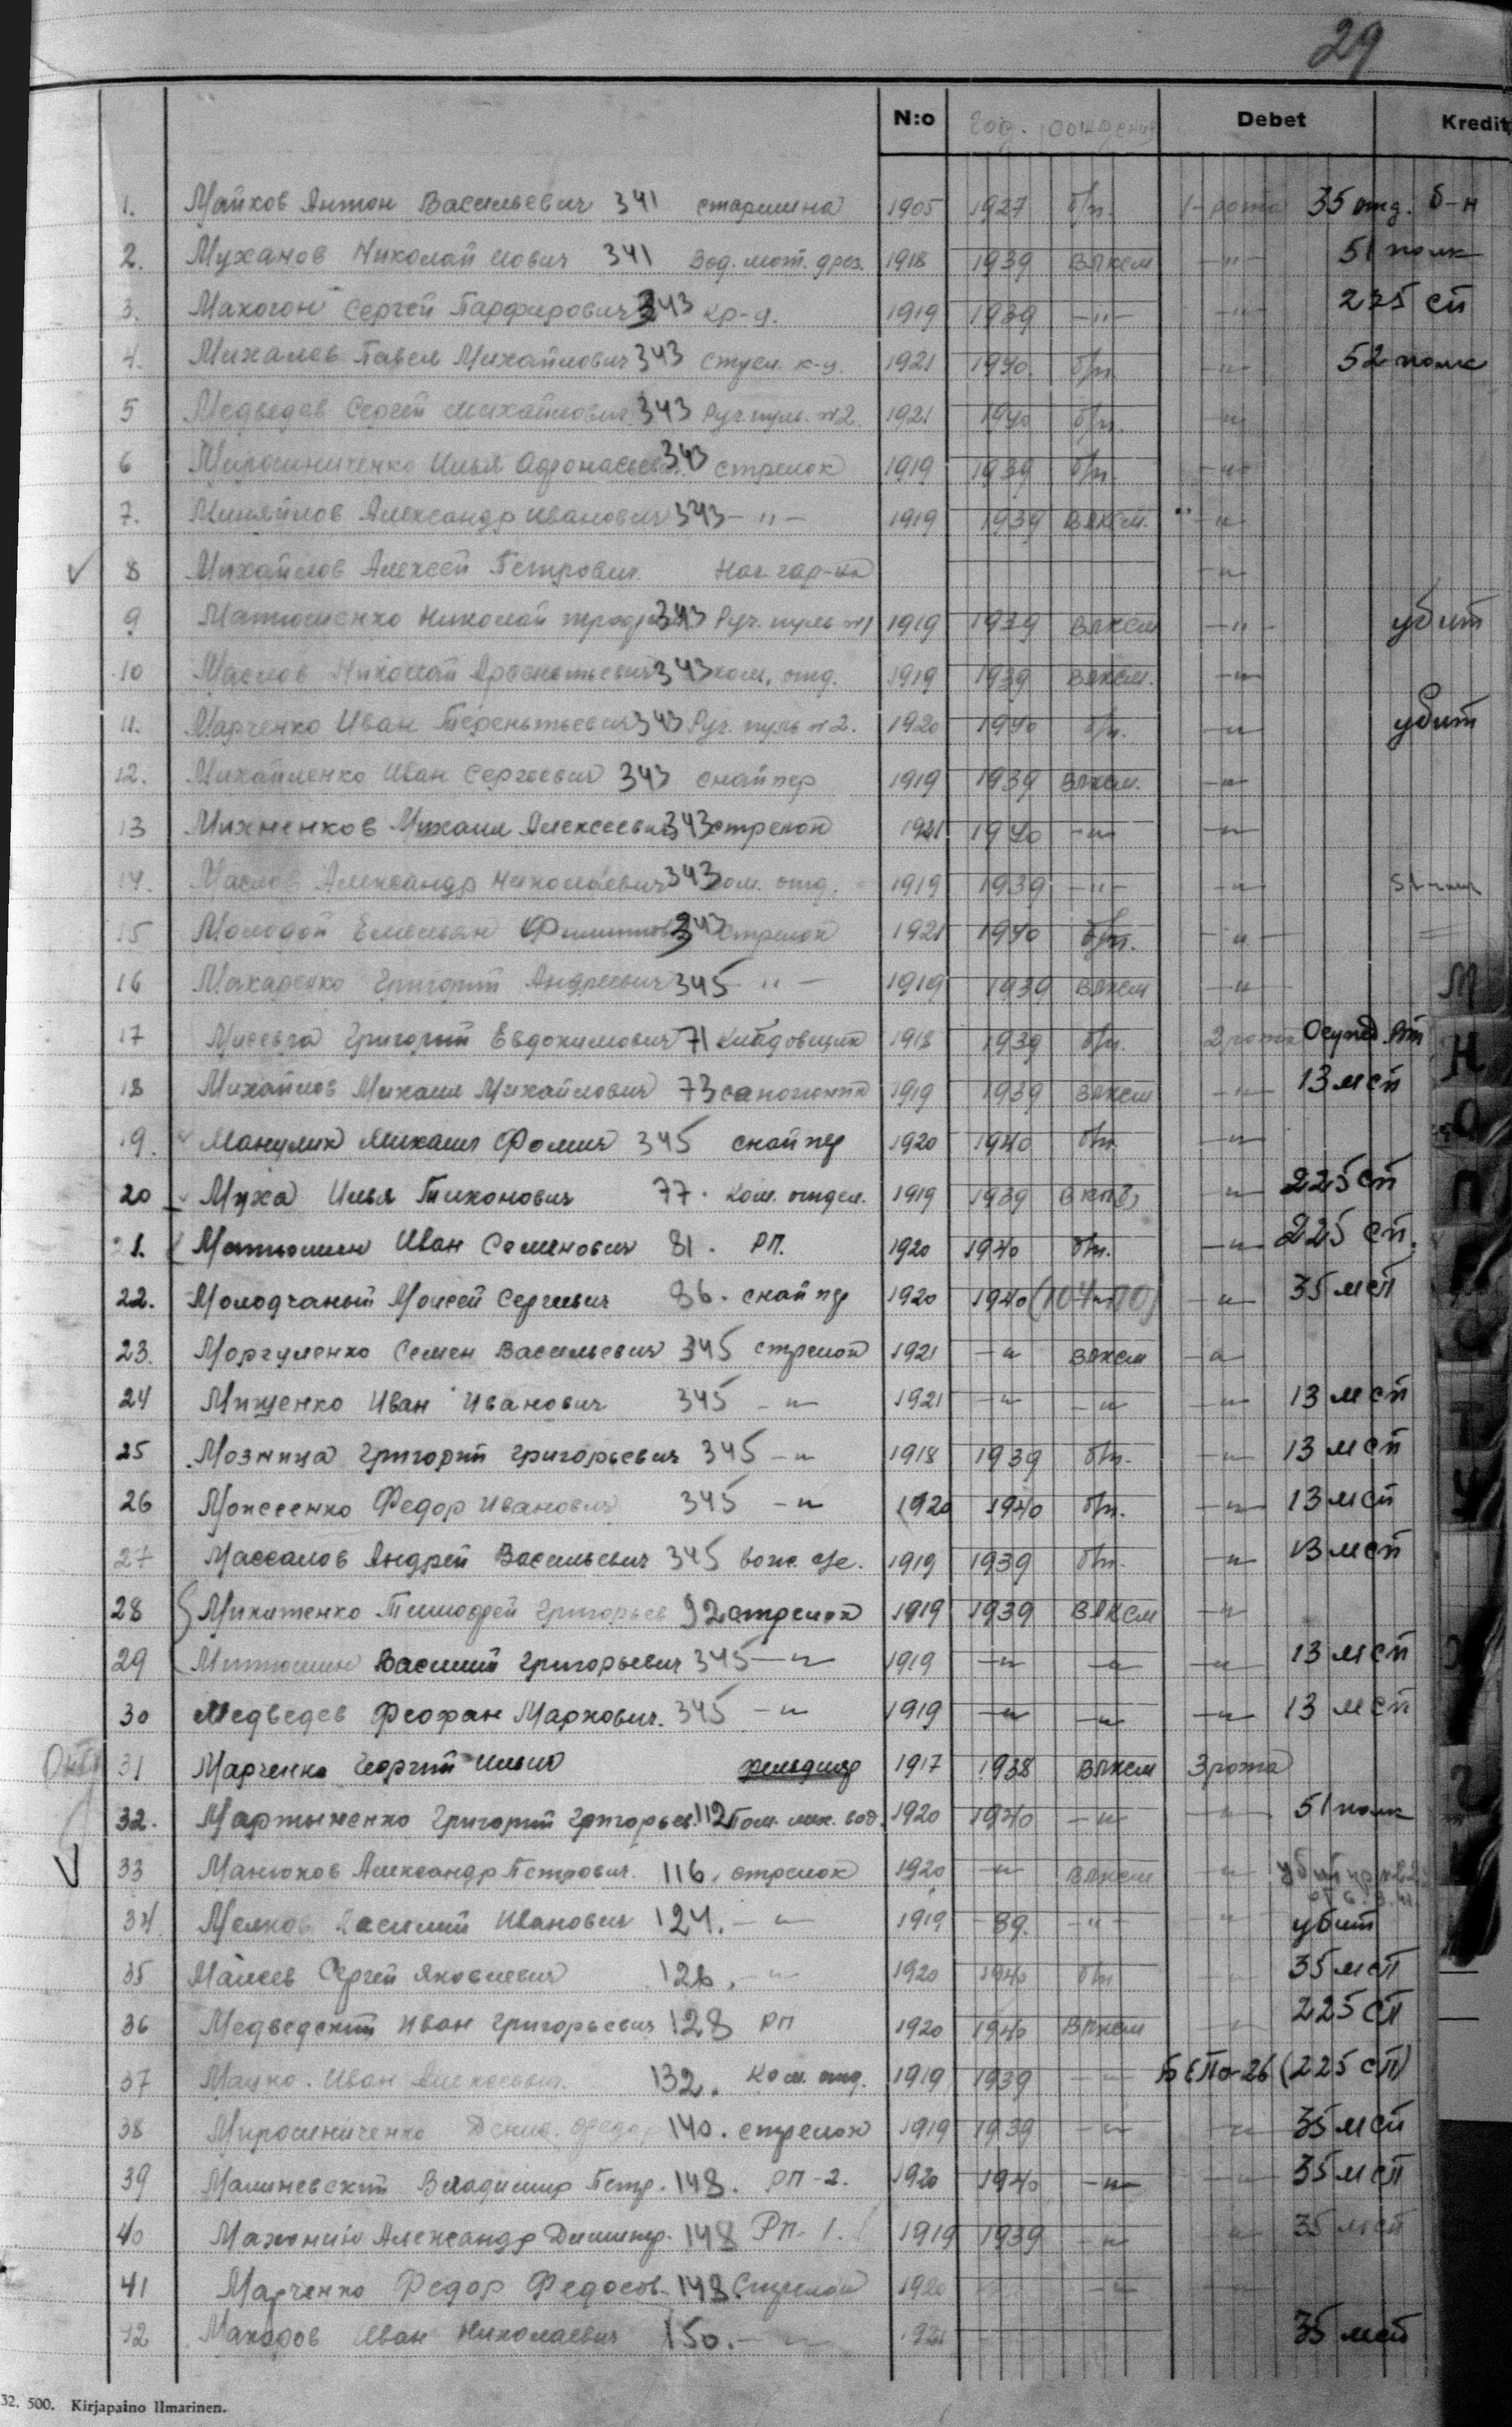 29
N:o год. рождения Debet Kredit
1. Майков Антон Васильевич 341 старшина 1905 1927 б/п. 1-рота 35 отд. б-н
2. Муханов Николай Иович 341 Вод. мот. дрез. 1918 1939 ВЛКСМ -"- 51 полк
3. Махогон Сергей Парфирович 343 кр-ц. 1919 1939 -"- -"- 225 СП
4. Михалев Павел Михайлович 343 1921 1940. б/п. -"- 52 полк
5 Медведев Сергей Михайлович 343 Руч. пул. №2. 1921 1940 б/п. -"-
6 Мирошниченко Илья 343 стрелок 1919 1939 б/п. -"-
7. Александр Иванович 343 -"- 1919 1939 ВЛКСМ. -"-
8 Михайлов Алексей Петрович. Нач. гар-на -"-
9 Матюшенко Николай 343 Руч. пуль №1 1919 1939 ВЛКСМ -"- убит
10 Маслов Николай 343 ком. отд. 1919 1939 ВЛКСМ. -"-
11. Марченко Иван Терентьевич 343 Руч. пуль №2. 1920 1940 б/п. -"- убит
12. Михайленко Иван Сергеевич 343 снайпер 1919 1939 ВЛКСМ. -"-
13 Михненков Михаил Алексеевич 343 стрелок 1921 1940 -"- -"-
14. Маслов Александр Николаевич 343 ком. отд. 1919 1939 -"- -"-
15 Молодой Емельян 343 стрелок 1921 1940 б/п. -"-
16 Макаренко Григорий Андреевич 345 -"- 1919 1939 ВЛКСМ -"-
17 Григорий Евдокимович 71 Кладовщик 1918 1939 б/п. 2 рота
18 Михайлов Михаил Михайлович 73 1919 1939 ВЛКСМ -"- 13 мсп
19. Манулик Михаил Фомич 345 снайпер 1920 1940 б/п. -"-
20 Муха Илья Тихонович 77. Ком. отдел. 1919 1939 -"- 225 СП
21. Матюшин Иван Семенович 81. РП. 1920 1940 б/п. -"- 225 СП.
22. Молодчаный Моисей Сергеевич 86. снайпер 1920 1940 -"- 35 мсп
23. Моргуленко Семен Васильевич 345 стрелок 1921 -"- ВЛКСМ -"-
24 Мищенко Иван Иванович 345 -"- 1921 -"- -"- -"- 13 мсп
25 Мозница Григорий Григорьевич 345 -"- 1918 1939 б/п. -"- 13 мсп
26 Моисеенко Федор Иванович 345 -"- 1920 1940 б/п. -"- 13 мсп
27 Массалов Андрей Васильевич 345 1919 1939 б/п. -"- 13 мсп
28 Микитенко Тимофей Григорьев 92 стрелок 1919 1939 ВЛКСМ -"-
29 Митюшин Василий Григорьевич 345 -"- 1919 -"- -"- -"- 13 мсп
30 Медведев Феофан Маркович. 345 -"- 1919 -"- -"- -"- 13 мсп
31 Марченко Георгий Ильич фельдшер 1917 1938 ВЛКСМ 3 рота
32. Мартыненко Григорий Григорьев. 112 Пом. мех. вод. 1920 1940 -"- -"- 51 полк
33 Манюков Александр Петрович. 116. стрелок 1920 -"- ВЛКСМ -"-
34. Василий Иванович 124. -"- 1919 -39. -"- -"- убит
35 Сергей Яковлевич 126. -"- 1920 1940 б/п -"- 35 мсп
36 Медведский Иван Григорьевич 128 РП 1920 1940 ВЛКСМ -"- 225 СП
37 Мацко. Иван Алексеевич. 132. Ком. отд. 1919 1939 -"- (225 СП)
38 Мирошниченко Денис. Федор 140. стрелок 1919 1939 -"- -"- 35 мсп
39 Малиневский Владимир Петр. 148. РП-2. 1920 1940 -"- -"- 35 мсп
40 Махонин Александр Дмитр. 148 РП-1. 1919 1939 -"- -"- 35 мсп
41 Марченко Федор Федосов. 148. Стрелок 1920 -"- -"-
42 Макаров Иван Николаевич 150. -"- 35 мсп
32. 500. Kirjapaino Ilmarinen.